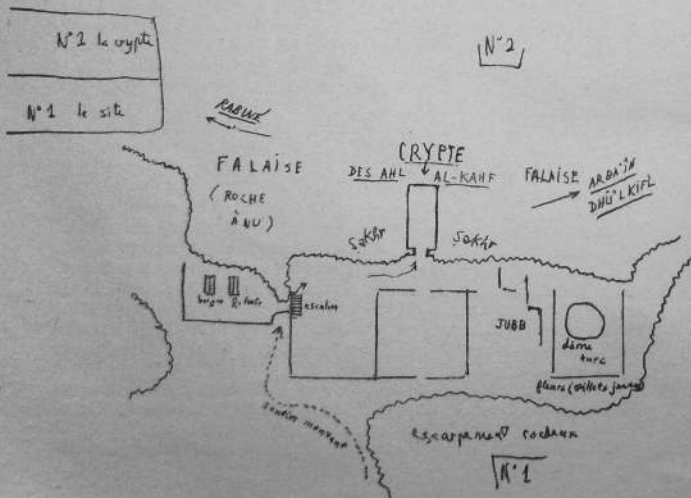 N°2 la crypte
N°1 le site
N°2
RABWÉ
FALAISE
(ROCHE
À NU)
CRYPTE
DES AHL AL-KAHF
FALAISE
ARBA'ÎN
DHÛ'LKIFL
Sakhr
Sakhr
escalier
JUBB
dôme
turc
fleurs (œillets jaunes)
sentier montant
escarpement rocheux
N°1